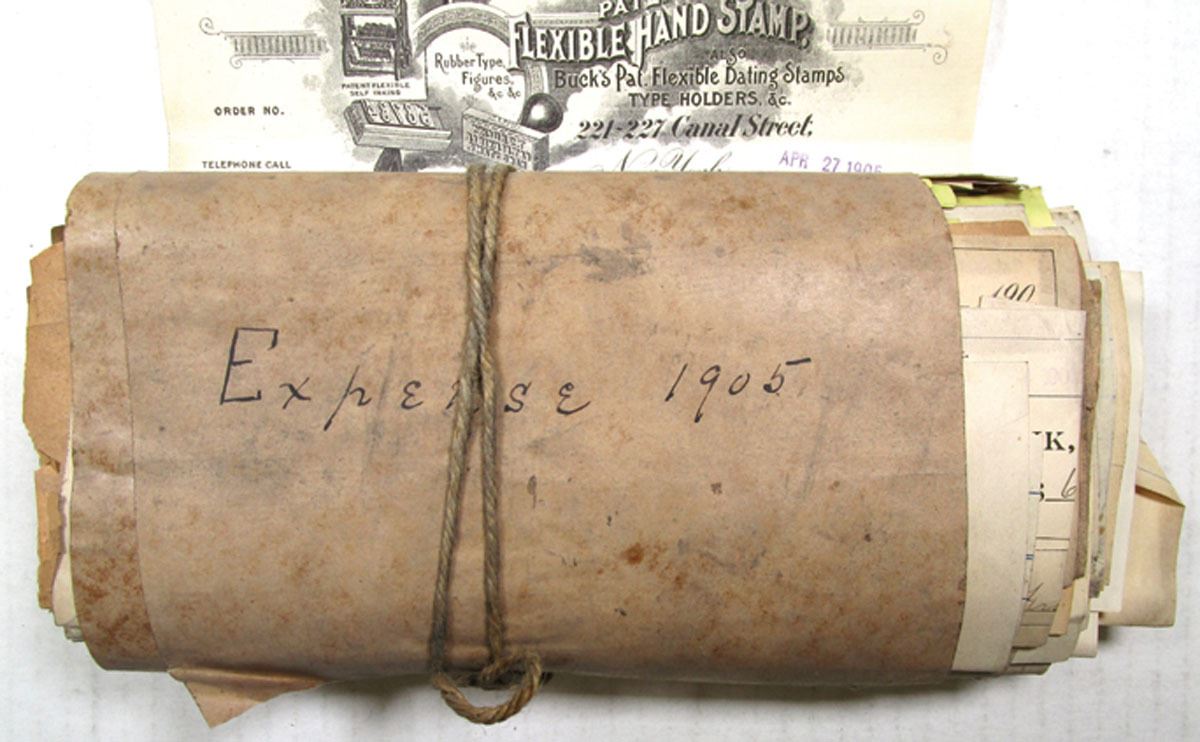 FLEXIBLE HAND STAMP,
ALSO
Buck's Pat. Flexible Dating Stamps
TYPE HOLDERS, &c.
221-227 Canal Street,
Rubber Type,
Figures,
&c &c
PATENT FLEXIBLE
SELF INKING
ORDER NO.
TELEPHONE CALL
New York
APR 27 1905
Expense 1905
190
K,
6